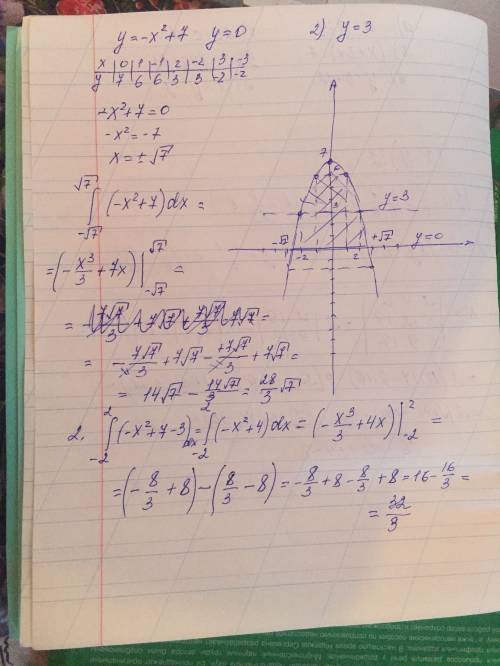 y=-x²+7 y=0 2) y=3
x | 0 | 1 | -1 | 2 | -2 | 3 | -3
y | 7 | 6 | 6 | 3 | 3 | -2 | -2
-x²+7=0
-x²=-7
x=±√7
7
y=3
3
-√7 -2 2 +√7 y=0
∫_{-√7}^{√7} (-x²+7)dx=
=(-x³/3+7x)|_{-√7}^{√7} =
= -7√7/3+7√7-+7√7/3+7√7=
= 14√7-14√7/3=28/3√7
2. ∫_{-2}^{2}(-x²+7-3)dx=∫_{-2}^{2}(-x²+4)dx=(-x³/3+4x)|_{-2}^{2} =
=(-8/3+8)-(8/3-8)=-8/3+8-8/3+8=16-16/3=
=32/3